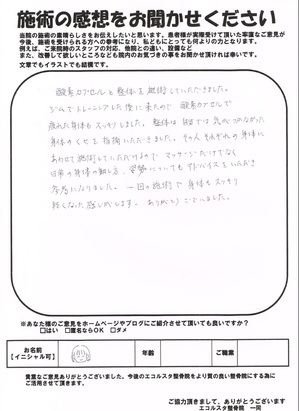 施術の感想をお聞かせください
当院の施術の素晴らしさをお伝えしたいと思います。患者様が実際受けて頂いた率直なご意見が
今後、施術を受けられる方への参考になり、私どもにとっても何よりの力となります。
例えば、ご来院時のスタッフの対応、他院との違い、設備など
また、改善して欲しいところなども院内のお気づきの事をお聞かせ頂ければ幸いです。
文章でもイラストでも結構です。
酸素カプセルと整体を施術していただきました。
ジムでトレーニングした後に来たので 酸素カプセルで
疲れた身体もスッキリしました。整体は自分では気のつかなかった
身体のくせを指摘いただきました。その人それぞれの身体に
あわせて施術していただけるので マッサージだけでなく
日常の身体の動し方、姿勢についてもアドバイスをいただき
参考になりました。一回の施術で身体もスッキリ
軽くなった感じがします。ありがとうございました。
※あなた様のご意見をホームページやブログにご紹介させて頂いても良いですか？
□はい □匿名ならOK □ダメ
お名前
【イニシャル可】
年齢
ご職業
貴重なご意見ありがとうございました。今後のエコルスタ整骨院をより質の良い整骨院にする為に
ご活用させて頂きます。
ご協力頂きまして、ありがとうございます
エコルスタ整骨院 一同